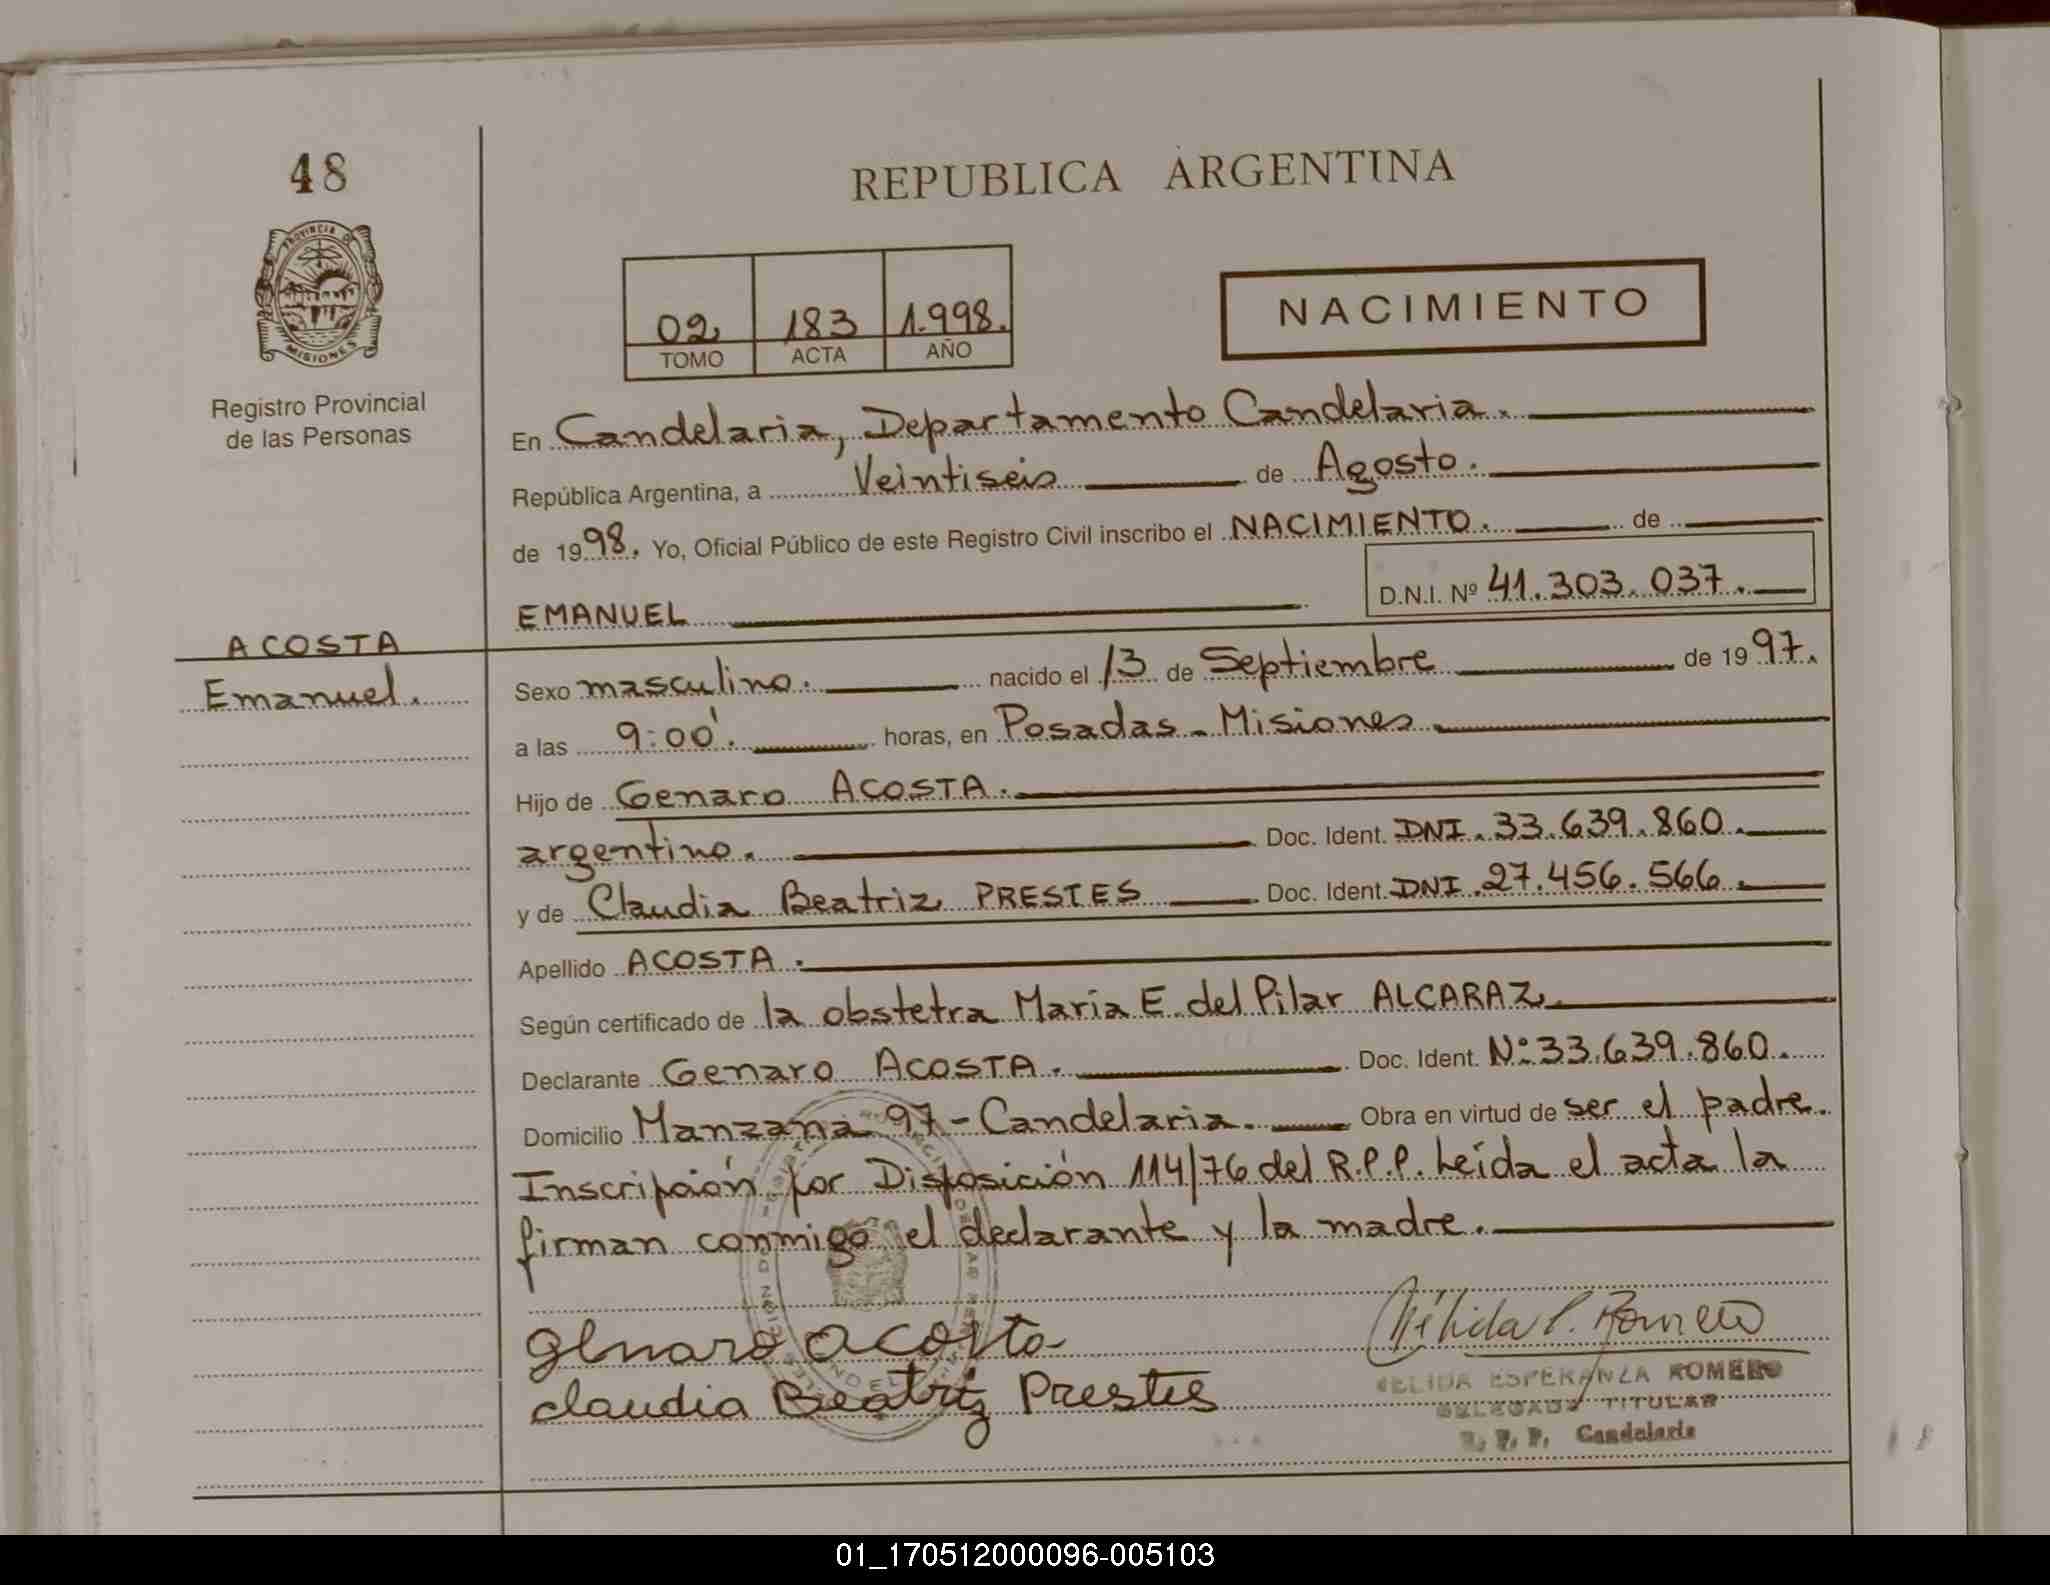 48
REPUBLICA ARGENTINA
PROVINCIA DE
MISIONES
02 183 1.998.
TOMO ACTA AÑO
NACIMIENTO
Registro Provincial
de las Personas
En Candelaria, Departamento Candelaria.
República Argentina, a Veintiseis de Agosto.
de 1998. Yo, Oficial Público de este Registro Civil inscribo el NACIMIENTO. de
D.N.I. Nº 41.303.037.
EMANUEL
ACOSTA
Emanuel.
Sexo masculino. nacido el 13 de Septiembre de 1997.
a las 9:00'. horas, en Posadas - Misiones
Hijo de Genaro ACOSTA.
argentino. Doc. Ident. DNI. 33.639.860.
y de Claudia Beatriz PRESTES Doc. Ident. DNI. 27.456.566.
Apellido ACOSTA.
Según certificado de la obstetra Maria E. del Pilar ALCARAZ.
Declarante Genaro ACOSTA. Doc. Ident. Nº 33.639.860.
Domicilio Manzana 97 - Candelaria. Obra en virtud de ser el padre.
Inscripción por Disposición 114/76 del R.P.P. Leída el acta la
firman conmigo el declarante y la madre.
Genaro acosta
claudia Beatriz Prestes
Nélida E. Romero
NELIDA ESPERANZA ROMERO
DELEGADA TITULAR
R. P. P. Candelaria
01_170512000096-005103